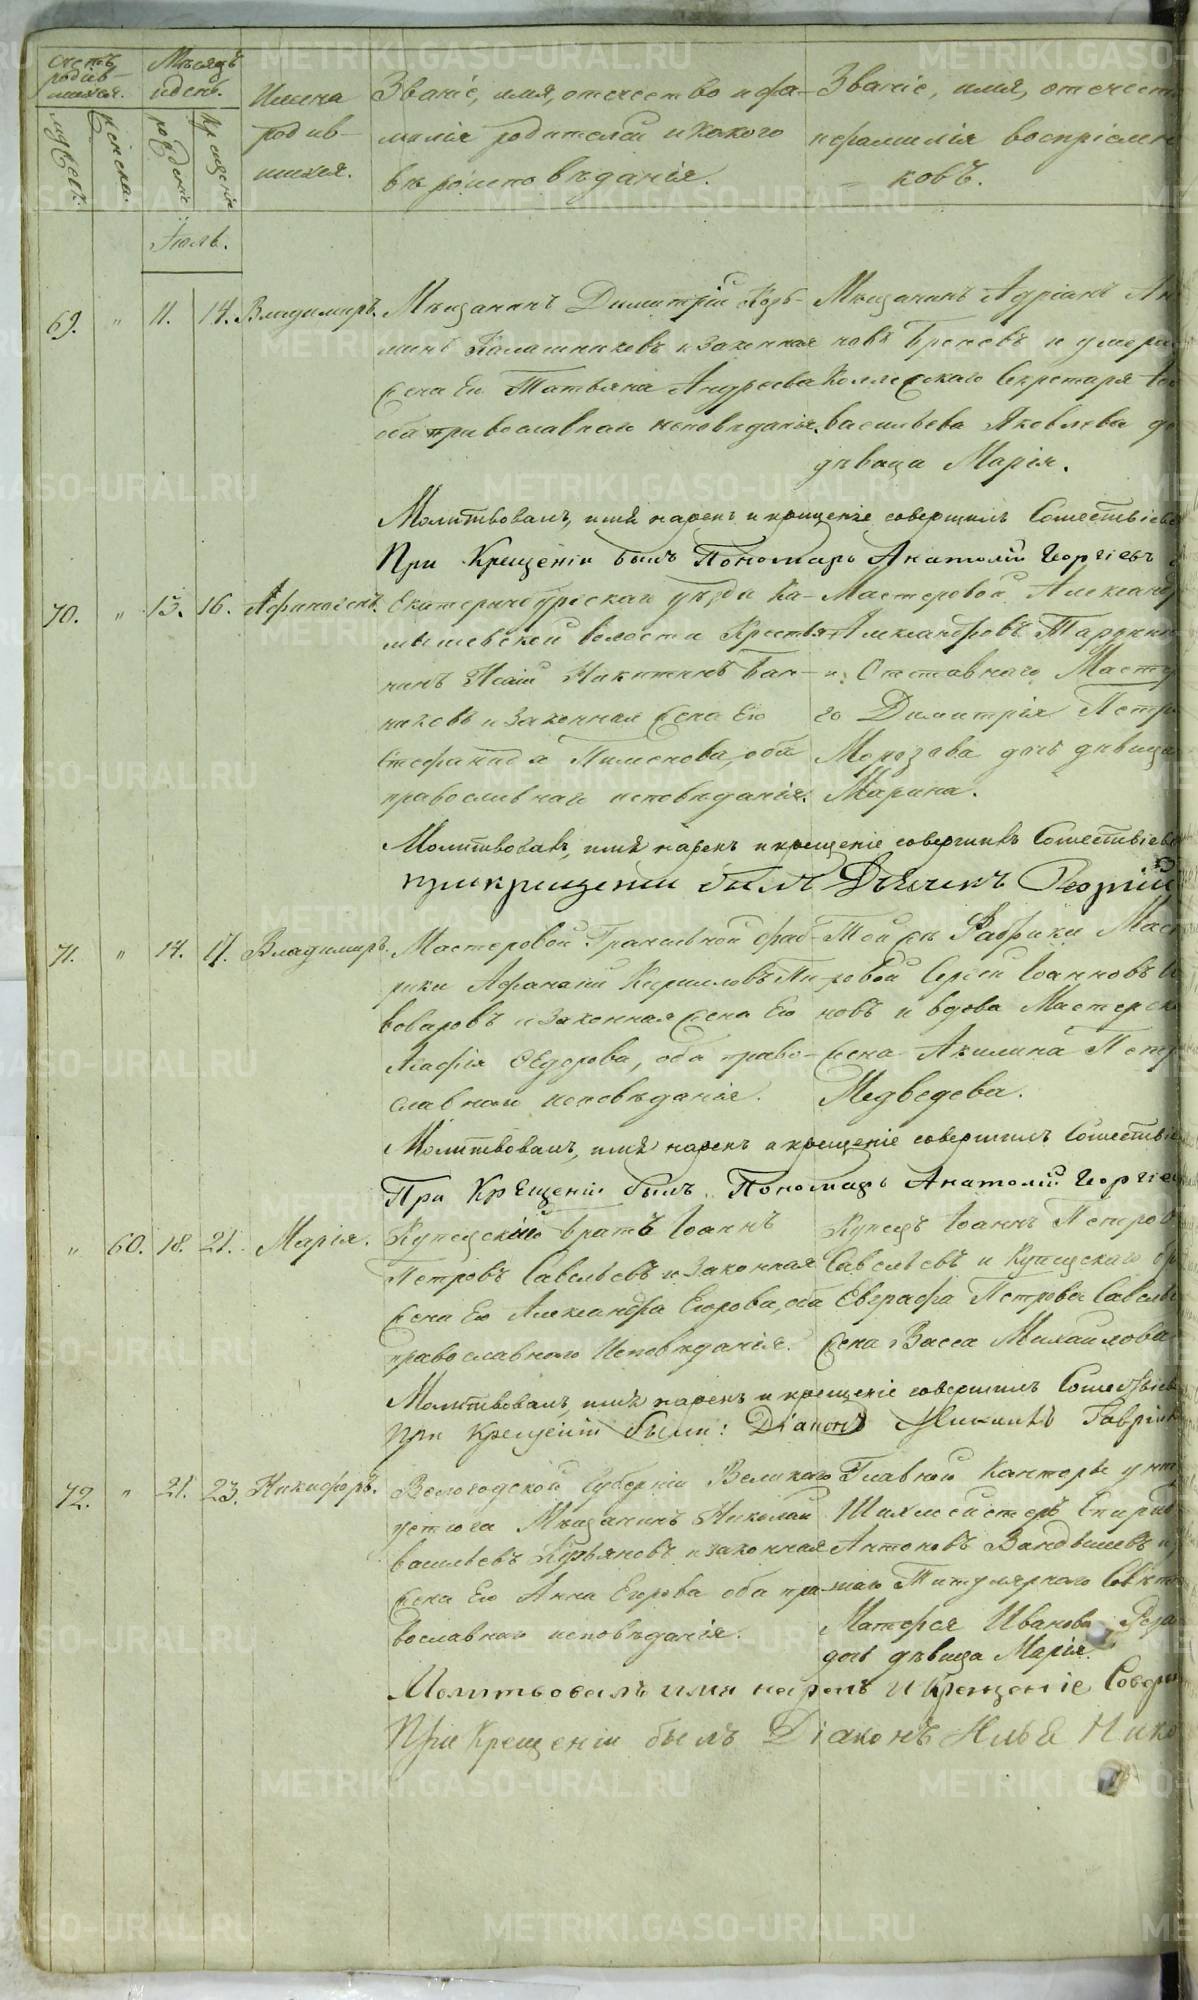 счетъ родив-шихся.
Мѣсяцъ и день.
Имена родив-шихся.
Званіе, имя, отечество и фа-милія родителей и какого вѣроисповѣданія.
Званіе, имя, отечест и фамилія воспріемни-ковъ.
мужеск. женска. рожденія крещенія
Іюль.
69. " 11. 14. Владимиръ.
Мѣщанинъ Димитрій Козь-
минъ Калашниковъ и законная
жена Его Татьяна Андреева
оба православнаго исповѣданія.
Мѣщанинъ Адріанъ
новъ Бреневъ и умерш
Коллежскаго Секретаря
Васильева Яковлева до
дѣвица Марія.
Молитвовалъ, имя нарекъ и крещеніе совершилъ Сошествіев
При Крещеніи былъ Пономарь Анатолій Георгіевъ
70. " 13. 16. Афиногенъ.
Екатеринбургскаго уѣзда Ка-
мышевской волости Крестья-
нинъ Исаій Никитинъ Бан-
никовъ и законная жена Его
Стефанида Пименова, оба
православнаго исповѣданія.
Мастеровой Александ
Александровъ Тарокин
и Отставнаго Масте
го Димитрія Петро
Морозова дочь дѣвица
Марина.
Молитвовалъ, имя нарекъ и крещеніе совершилъ Сошествіев
При крещеніи былъ Дьячекъ Георгій
71. " 14. 17. Владимиръ.
Мастеровой Гранильной фаб-
рики Афанасій Кирилловъ Пи-
воваровъ и законная жена Его
Агафія Ѳедорова, оба право-
славнаго исповѣданія.
Той же Фабрики Мас
ровой Сергей Іоанновъ
новъ и вдова Мастерск
жена Акилина Петр
Медведева.
Молитвовалъ, имя нарекъ и крещеніе совершилъ Сошествіе
При Крещеніи былъ Пономарь Анатолій Георгіев
" 60. 18. 21. Марія.
Купецкій братъ Іоаннъ
Петровъ Савельевъ и Законная
жена Его Александра Егорова, оба
православнаго Исповѣданія.
Купецъ Іоаннъ Петров
Савельевъ и Купецкаго бр
Евграфа Петрова Савель
жена Васса Михайлова
Молитвовалъ, имя нарекъ и крещеніе совершилъ Сошествіев
При Крещеніи были: Діаконъ Гавріи
72. " 21. 23. Никифоръ.
Вологодской Губерніи Великаго
устюга Мѣщанинъ Николай
Васильевъ Кузьяновъ и законная
жена Его Анна Егорова оба пра-
вославнаго исповѣданія.
Главной Канторы унт
Шихмейстеръ Спирид
Антоновъ Вандышевъ и
шаго Титулярнаго Совѣтн
Матфея Иванова
дочь дѣвица Марія.
Молитвовалъ имя нарекъ и Крещеніе Совер
При Крещеніи былъ Діаконъ Илья Нико